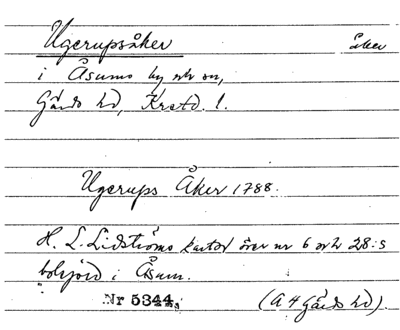 Ugerupsåker åker
i Åsums by och sn,
Gärds hd, Krstd. l.
Ugerups Åker 1788.
H. L. Lidströms kartor över nr 6 och 28:s
bolsjord i Åsum.
Nr 5344. (A 4 Gärds hd).